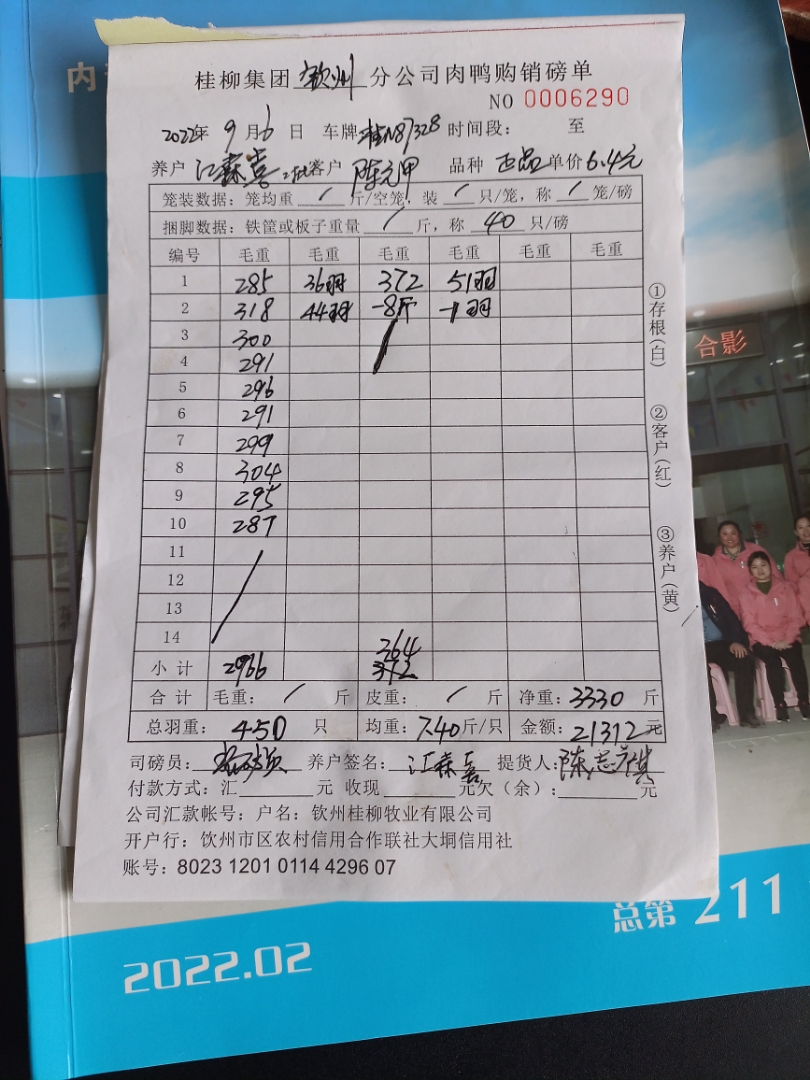 内
桂柳集团 钦州 分公司肉鸭购销磅单
NO 0006290
2022年 9 月 6 日 车牌 桂N87328 时间段： 至
养户 江森喜 客户 陈元甲 品种 正品 单价 6.4元
笼装数据：笼均重 / 斤/空笼，装 / 只/笼，称 / 笼/磅
捆脚数据：铁筐或板子重量 / 斤，称 40 只/磅
编号 毛重 毛重 毛重 毛重 毛重 毛重
1 285 36羽 372 51羽
2 318 44羽 -8斤 -1羽
3 300 /
4 291
5 296
6 291
7 299
8 304
9 295
10 287
11 /
12
13
14 364
小计 2966 372
合计 毛重： / 斤 皮重： / 斤 净重：3330 斤
总羽重： 450 只 均重：7.40斤/只 金额：21312元
司磅员： 养户签名： 江森喜 提货人：陈志
付款方式：汇 元 收现 元欠（余）： 元
公司汇款帐号：户名：钦州桂柳牧业有限公司
开户行：钦州市区农村信用合作联社大垌信用社
账号：8023 1201 0114 4296 07
①存根（白）
②客户（红）
③养户（黄）
合影
总第 211
2022.02